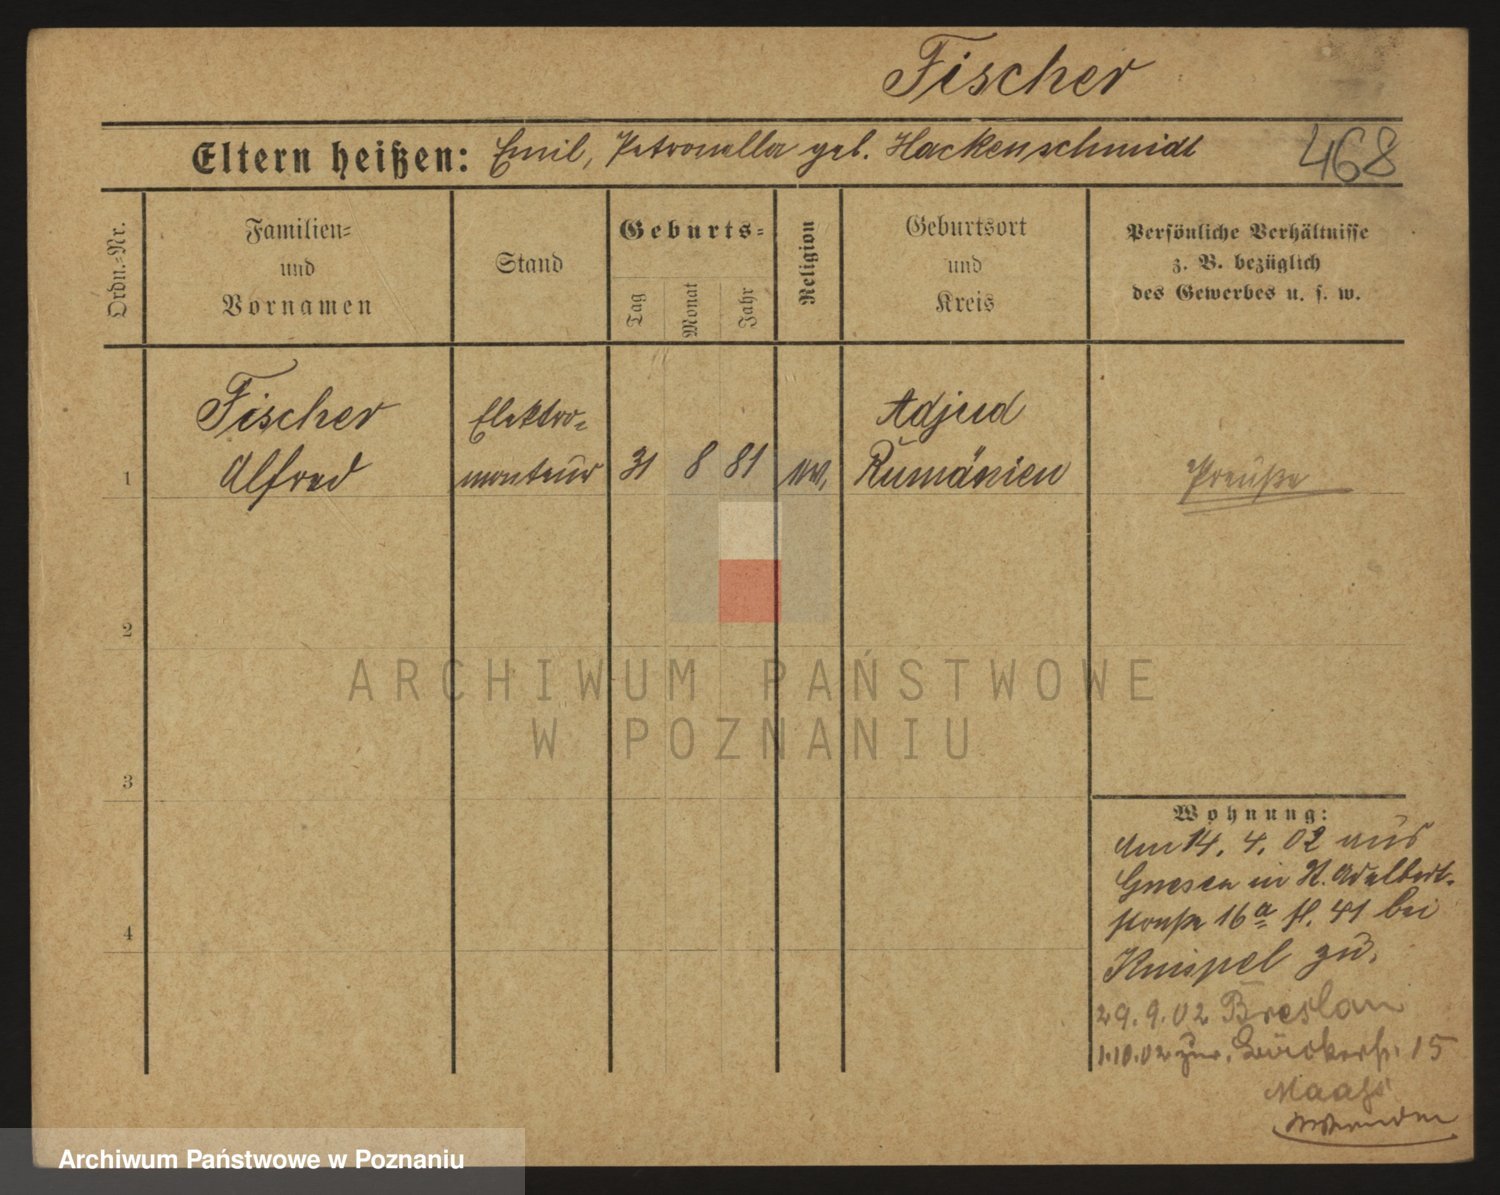 Fischer
Eltern heißen: Emil, Petronella geb. Hackenschmidt
468
Ordn.-Nr.
Familien-
und
Vornamen
Stand
Geburts-
Tag
Monat
Jahr
Religion
Geburtsort
und
Kreis
Persönliche Verhältnisse
z. B. bezüglich
des Gewerbes u. s. w.
1
Fischer
Alfred
Elektro-
monteur
31 8 81
Adjud
Rumänien
Preuße
2
3
4
Wohnung:
Am 14. 4. 02 aus
Gnesen in St. Adalbert-
straße 16a St. 41 bei
Knispel zu.
29. 9. 02 Breslau
1.10.02 zur. Bäckerstr. 15
Maaß
wenden
ARCHIWUM PAŃSTWOWE
W POZNANIU
Archiwum Państwowe w Poznaniu